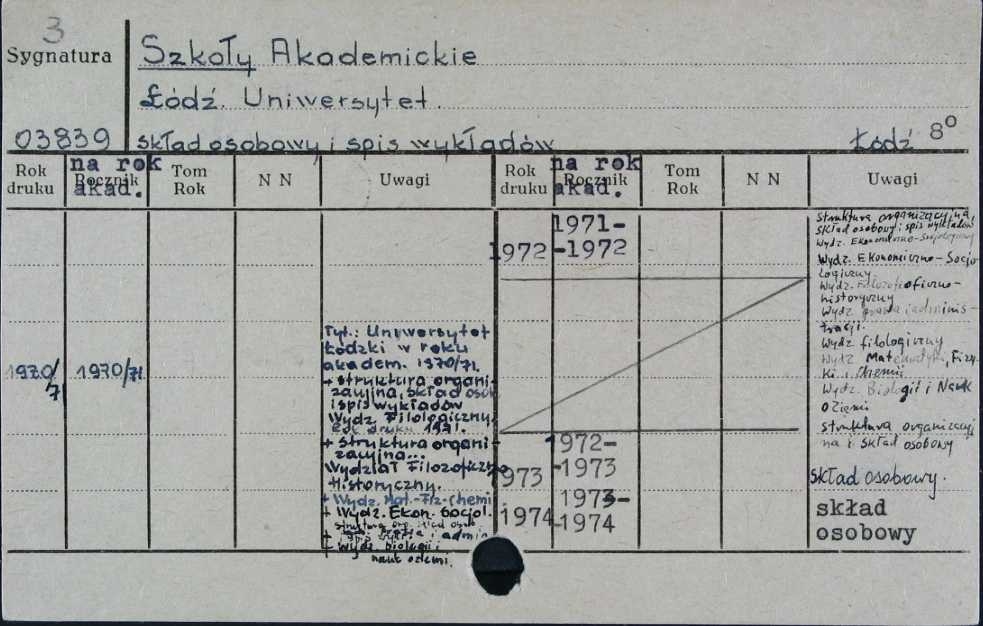 3
Sygnatura
Szkoły Akademickie
Łódź. Uniwersytet.
03839 skład osobowy i spis wykładów Łódź 8°
Rok druku
na rok akad.
Rocznik
Tom Rok
N N
Uwagi
Rok druku
na rok akad.
Rocznik
Tom Rok
N N
Uwagi
1970/7
1970/71
Tyt.: Uniwersytet
Łódzki w roku
akadem. 1970/71.
+ struktura organi-
zacyjna, skład osob.
i spis wykładów
Wydz. Filologiczny.
Rok druku 1971.
+ struktura organi-
zacyjna...
Wydział Filozoficzno
Historyczny.
+ Wydz. Mat.-Fiz.-chemi
+ Wydz. Ekon. Socjol.
i admin
+ Wydz. biologii i
nauk oziemi.
1972
1971-
-1972
1973
1972-
-1973
1974
1973-
-1974
struktura organizacyjna,
skład osobowy i spis wykładów
Wydz. Ekonomiczno-Socjologiczny
Wydz. Ekonomiczno-Socjo
logiczny
Wydz. Filozoficzno-
historyczny
Wydz. prawa i adminis-
tracji.
Wydz filologiczny
Wydz Matematyki, Fizy-
ki i Chemii
Wydz. Biologii i Nauk
o Ziemi
struktura organizacyj
na i skład osobowy
skład osobowy.
skład
osobowy